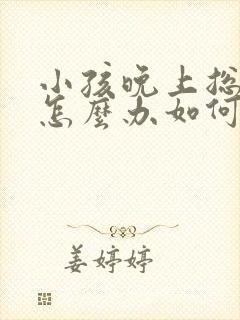 小孩晚上总
怎麼办如何
姜婷婷